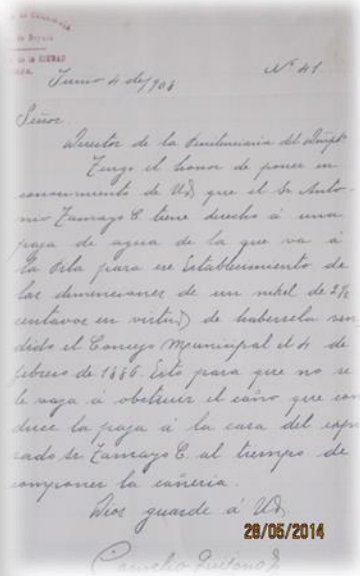 de Colombia
de Boyacá
de la CIUDAD
Junio 4 de/906 Nº 41
Señor
Director de la Penitenciaria del Dmpto
Tengo el honor de poner en
conocimiento de Ud que el Sr Anto-
nio Tamayo C. tiene derecho á una
paja de agua de la que va á
la Pila para ese Establecimiento de
las dimenciones de un nikel de 2½
centavos en virtud de habersela ven
dido el Concejo Municipal el 4 de
febrero de 1886. Esto para que no se
le vaya á obstruir el caño que con
duce la paja á la casa del expre
sado Sr Tamayo C. al tiempo de
componer la cañeria.
Dios guarde á Ud
28/05/2014
Camilo